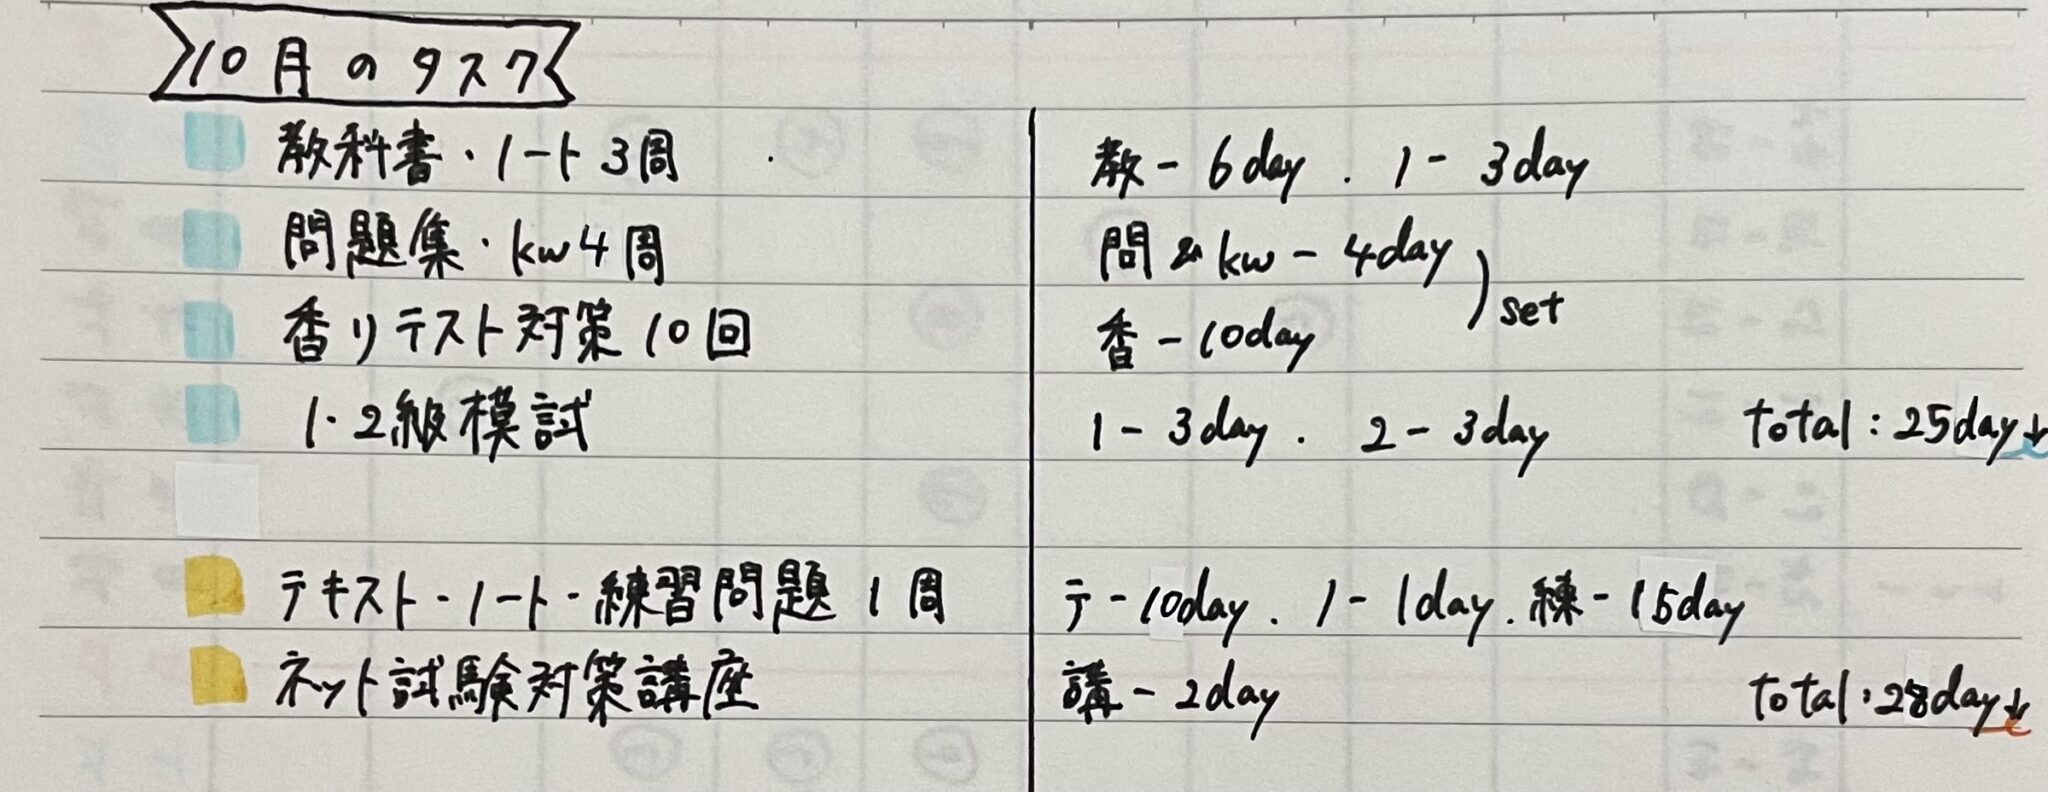 10月のタスク
教科書・ノート3周
教-6day . ノ-3day
問題集・kw4周
問&kw-4day
香りテスト対策10回
香-10day
set
1・2級模試
1-3day . 2-3day
total:25day↓
テキスト・ノート・練習問題1周
テ-10day . ノ-1day . 練-15day
ネット試験対策講座
講-2day
total:28day↓